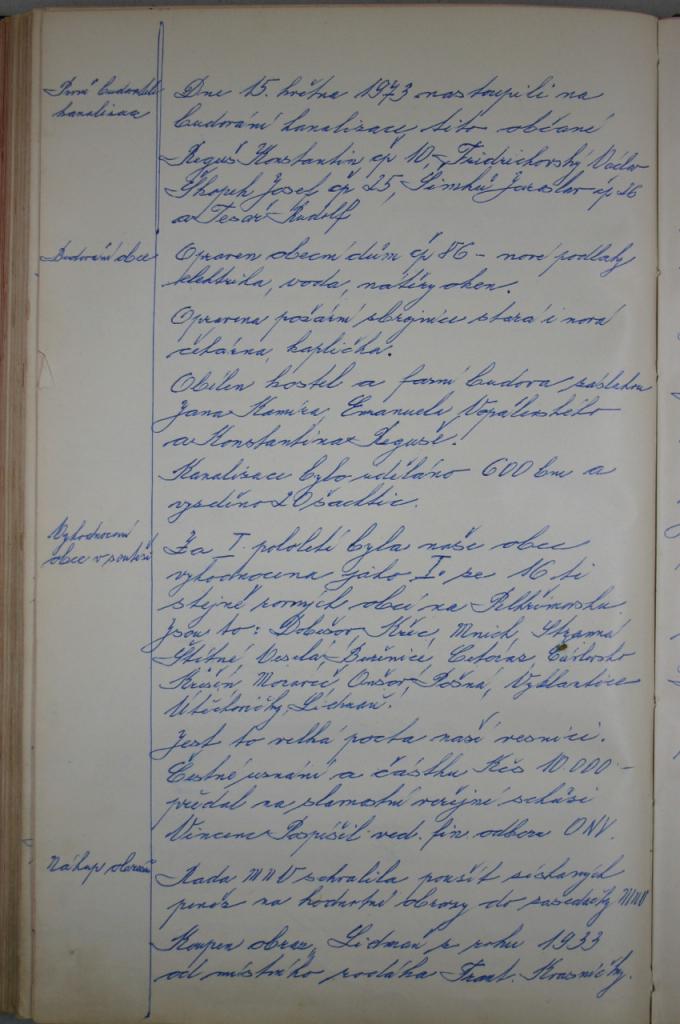 První budovatelé
kanalizace
Dne 15. května 1973 nastoupili na
budování kanalizace tito občané
Reguš Konstantin čp 10, Fridrichovský Václav
Škopek Josef čp 25, Šimků Jaroslav čp 86
a Tesař Rudolf
Budování obce
Opraven obecní dům čp 86 – nové podlahy
elektrika, voda, nátěry oken.
Opravena požární zbrojnice stará i nová
čekárna, kaplička.
Obílen kostel a farní budova zásluhou
Jana Kamíra, Emanuela Vopálenského
a Konstantina Reguše.
Kanalizace bylo uděláno 600 bm a
vyzděno 20 šachtic.
Vyhodnocení
obce v soutěži
Za I. pololetí byla naše obec
vyhodnocena jako I. ze 16 ti
stejně rovných obcí na Pelhřimovsku.
Jsou to: Dobešov, Křeč, Mnich, Stranná
Štítné, Veselá, Buřenice, Cetoraz,
Křešín, Moraveč, Onšov, Pošná, Vyklantice
Útěchovičky, Lidmaň.
Jest to velká pocta naší vesnici.
Čestné uznání a částku Kčs 10 000 –
předal na slavnostní veřejné schůzi
Vincenc Pospíšil ved. fin. odboru ONV.
Nákup obrazů
Rada MNV schválila použít získaných
peněz na hodnotné obrazy do zasedačky MNV
Koupen obraz „Lidmaň z roku 1933
od místního rodáka Frant. Krasničky.